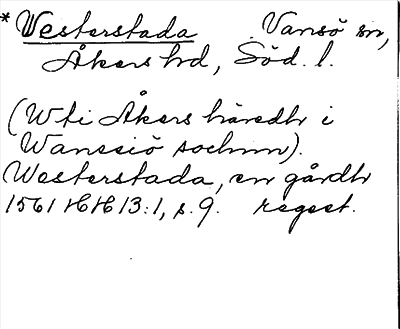 * Westerstada Vansö sn,
Åkers hd, Söd. l.
(Wti Åkers häredh i
Wanssiö sochnn).
Westerstada, en gårdh
1561 HH 13:1, s. 9. regest.